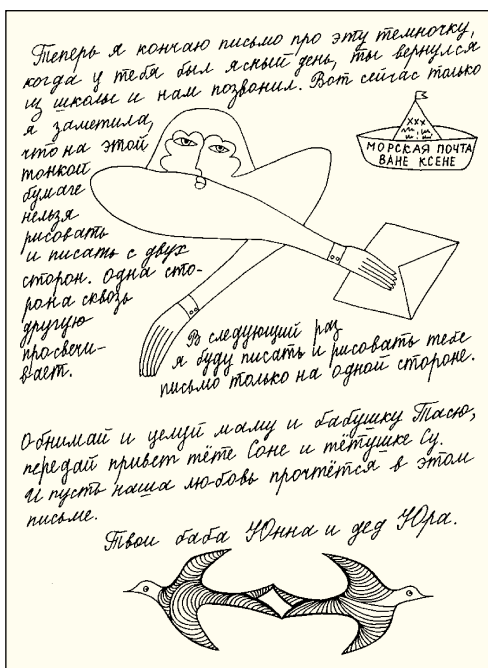 Теперь я кончаю письмо про эту темночку,
когда у тебя был ясный день, ты вернулся
из школы и нам позвонил. Вот сейчас только
я заметила,
что на этой
тонкой
бумаге
нельзя
рисовать
и писать с двух
сторон. Одна сто-
рона сквозь
другую
просвечи-
вает.
ХХХ
МОРСКАЯ ПОЧТА
ВАНЕ КСЕНЕ
В следующий раз
я буду писать и рисовать тебе
письмо только на одной стороне.
Обнимай и целуй маму и бабушку Тасю,
передай привет тёте Соне и тётушке Су.
И пусть наша любовь прочтётся в этом
письме.
Твои баба Юнна и дед Юра.